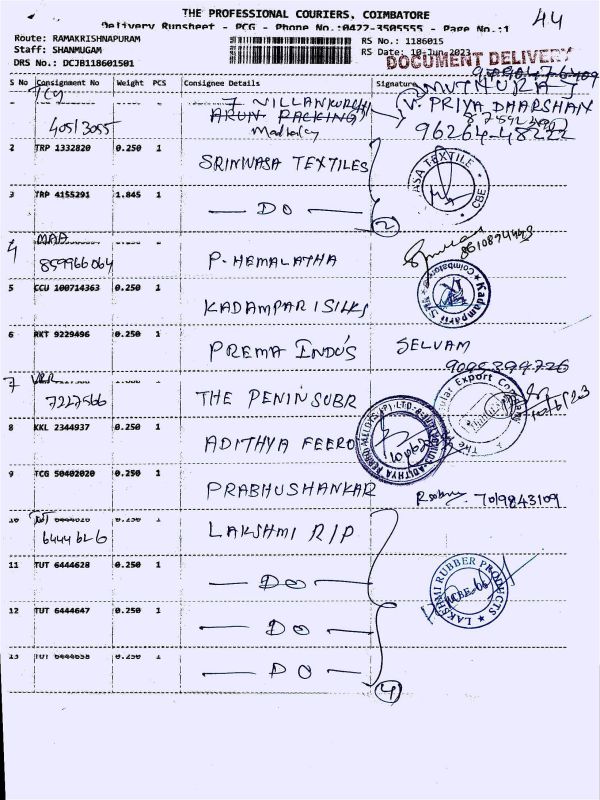 THE PROFESSIONAL COURIERS, COIMBATORE
44
Delivery Runsheet - PCG - Phone No.:0422-3505555 - Page No.:1
Route: RAMAKRISHNAPURAM
RS No.: 1186015
Staff: SHANMUGAM
RS Date: 10-Jun-2023
DRS No.: DCJB118601501
DOCUMENT DELIVERY
S No Consignment No Weight PCS Consignee Details Signature
TCG 40513055
ARUN PACKING
V. PRIYA DHARSHAN
96264-48222
2 TRP 1332820 0.250 1 SRINIVASA TEXTILES
ASA TEXTILE CBE
3 TRP 4155291 1.845 1 DO
2
4 MAA 859966064 P. HEMALATHA
5 CCU 100714363 0.250 1 KADAMPARI SILKS
Kadampari Silks Coimbatore
6 RKT 9229496 0.250 1 PREMA INDUS SELVAM
9095399726
7 7227566 THE PENINSUBR
10/6/23
8 KKL 2344937 0.250 1 ADITHYA FEERO
9 TCG 50402020 0.250 1 PRABHUSHANKAR 7019843109
10 TUT 6444626 0.250 1 LAKSHMI RIP
11 TUT 6444628 0.250 1 DO
LAKSHMI RUBBER PRODUCTS
12 TUT 6444647 0.250 1 DO
13 TUT 6444658 0.250 1 DO
4